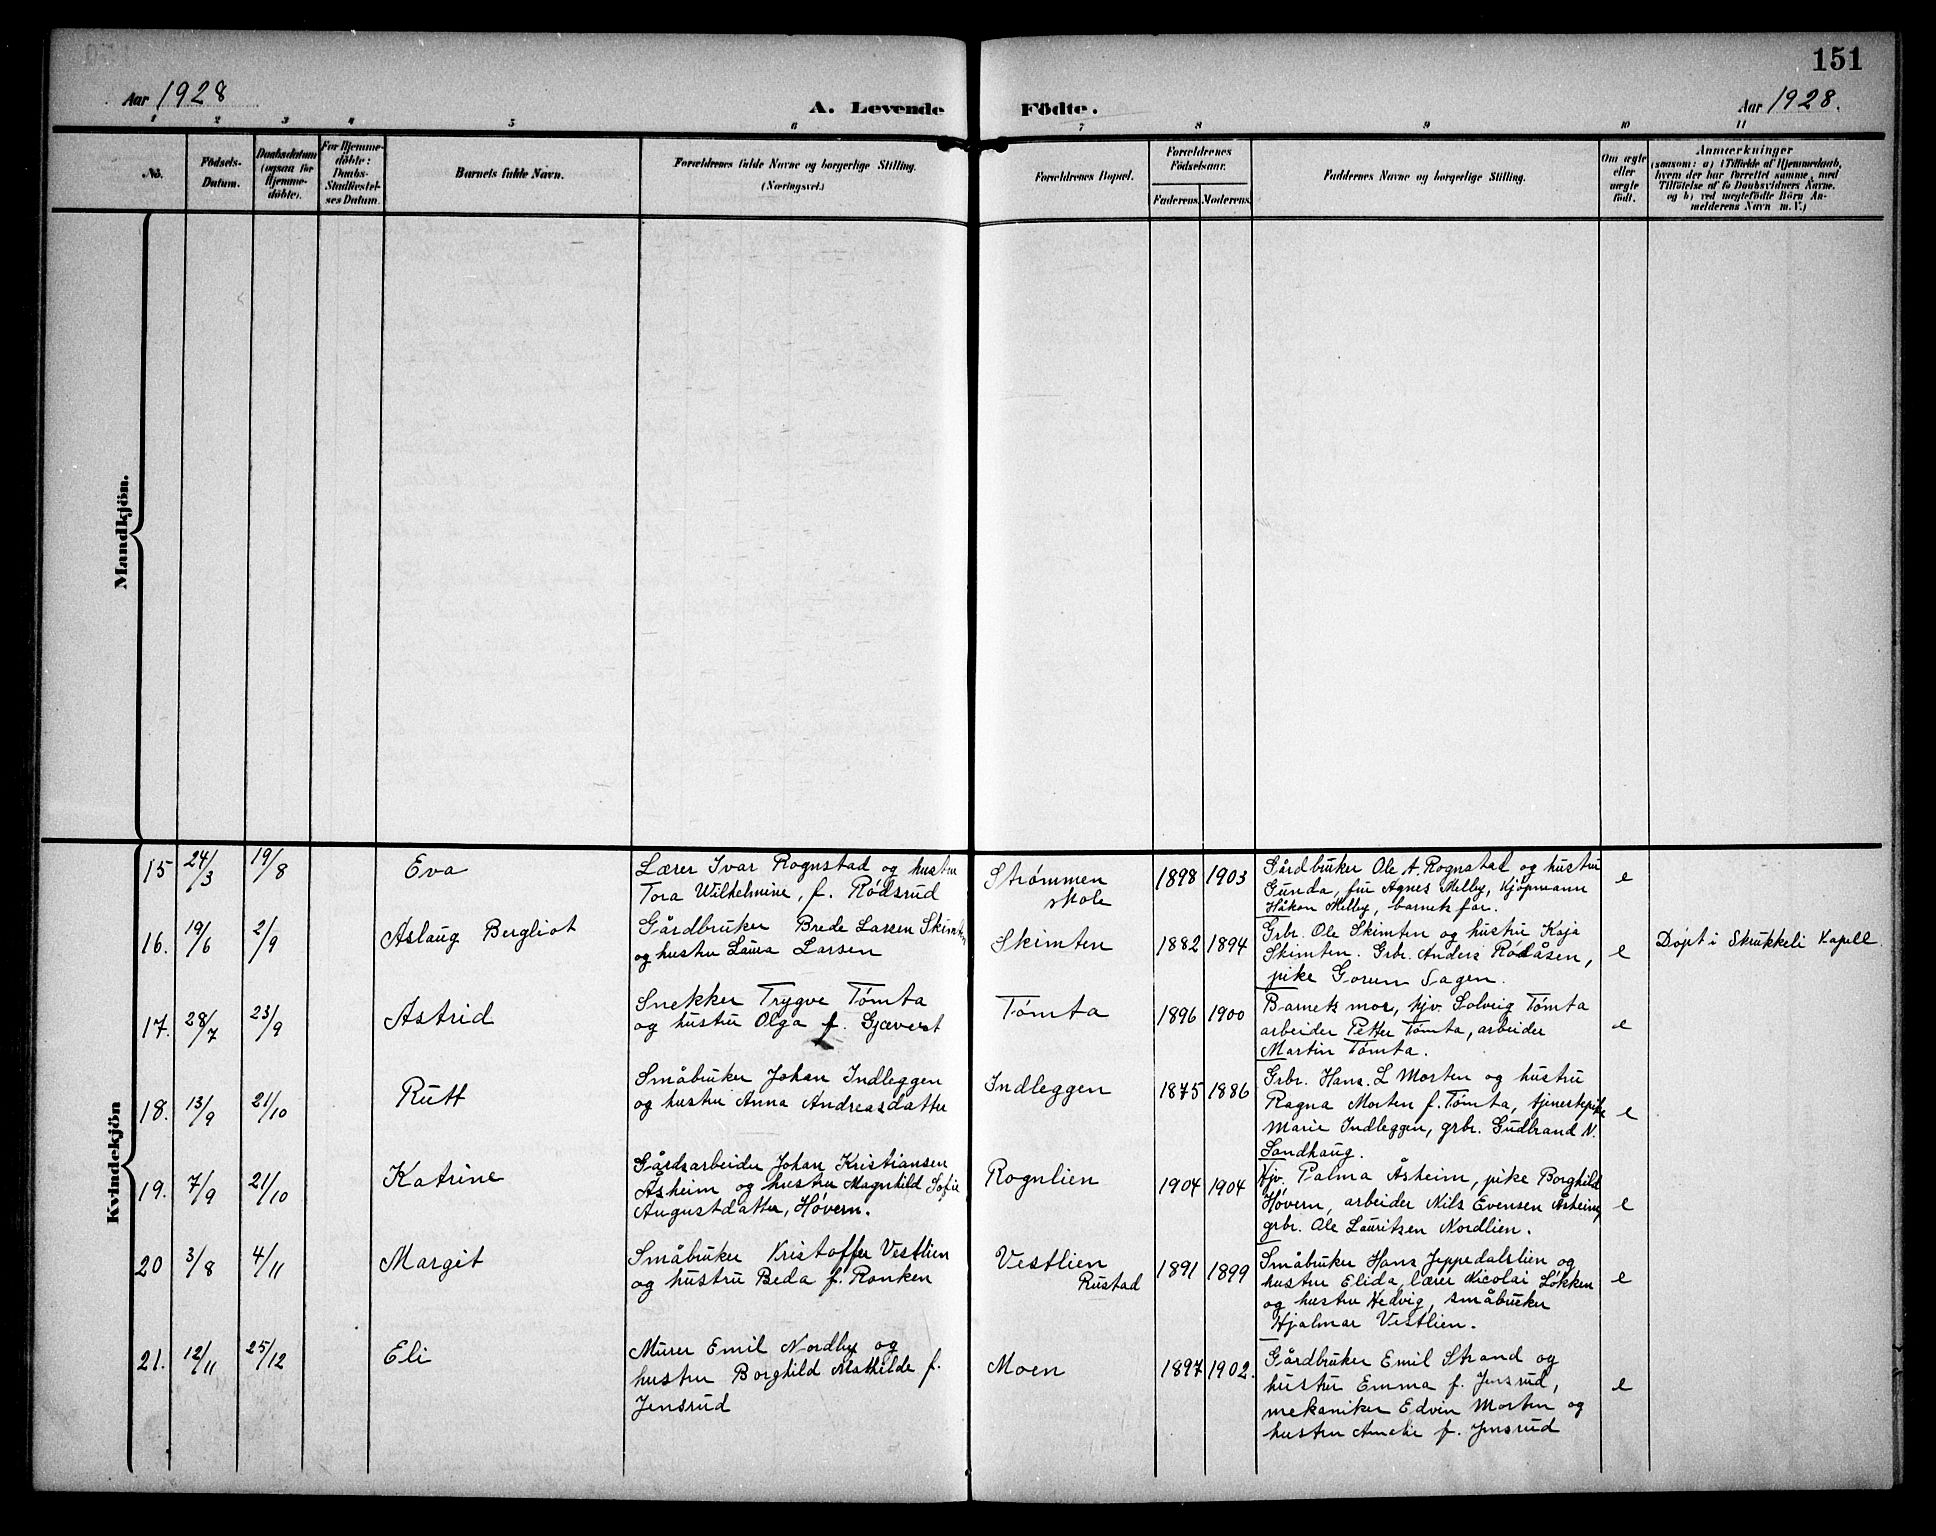 151
Aar 1928
A. Levende Födte.
Aar 1928.
1 2 3 4 5 6 7 8 9 10 11
No.
Födsels-
Datum.
Daabsdatum
(ogsaa for
Hjemme-
döbte).
For Hjemme-
döbte:
Daabs-
Stadfæstel-
ses Datum.
Barnets fulde Navn.
Forældrenes fulde Navne og borgerlige Stilling.
(Næringsvei.)
Forældrenes Bopæl.
Forældrenes
Födselsaar.
Faderens. Moderens.
Faddernes Navne og borgerlige Stilling.
Om ægte
eller
uægte
födt.
Anmærkninger
(saasom: a) i Tilfælde af Hjemmedaab,
hvem der har forrettet samme, med
Tilföielse af to Daabsvidners Navne,
og b) ved uægtefödte Börn An-
melderens Navn m. V.)
Mandkjön.
Kvindekjön
15 24/3 19/8 Eva
Lærer Ivar Rognstad og hustru
Tora Wilhelmine, f. Rødsrud
Strømmen
skole
1898 1903
Gårdbruker Ole A. Rognstad og hustru
Gunda, frk Agnes Melby, kjøpmann
Håkon Melby, barnets far.
e
16. 19/6 2/9 Aslaug Bergliot
Gårdbruker Brede Larsen Skimten
og hustru Laura Larsen
Skimten
1882 1894
Grbr. Ole Skimten og hustru Kaja
Skimten. Grbr. Anders Rødåsen,
pike Gorun Sagen.
e
Døpt i Skrukkeli Kapell.
17. 28/7 23/9 Astrid
Snekker Trygve Tømta
og hustru Olga f. Gjævert
Tømta
1896 1900
Barnets mor, hjv. Solveig Tømta
arbeider Petter Tømta, arbeider
Martin Tømta.
e
18. 13/9 21/10 Rutt
Småbruker Johan Indleggen
og hustru Anna Andreasdatter
Indleggen
1875 1886
Grbr. Hans. L Morten og hustru
Ragna Morten f. Tømta, tjenestepike
Marie Indleggen, grbr. Gudbrand N.
Sandhaug.
e
19. 7/9 21/10 Katrine
Gårdsarbeider Johan Kristiansen
Åsheim, og hustru Magnhild Sofie
Augustdatter, Høvern.
Rognlien
1904 1904
Hjv. Palma Åsheim, pike Borghild
Høvern, arbeider Nils Evensen Åsheim,
grbr. Ole Lauritsen Nordlien.
e
20 3/8 4/11 Margit
Småbruker Kristoffer Vestlien
og hustru Beda f. Ronken
Vestlien
Rustad
1891 1899
Småbruker Hans Jeppedalslien og
hustru Elida, lærer Nicolai Løkken
og hustru Hedvig, småbruker
Hjalmar Vestlien.
e
21. 12/11 25/12 Eli
Murer Emil Nordby og
hustru Borghild Mathilde f.
Jensrud
Moen
1897 1902.
Gårdbruker Emil Strand og
hustru Emma f. Jensrud,
mekaniker Edvin Morten og
hustru f. Jensrud
e